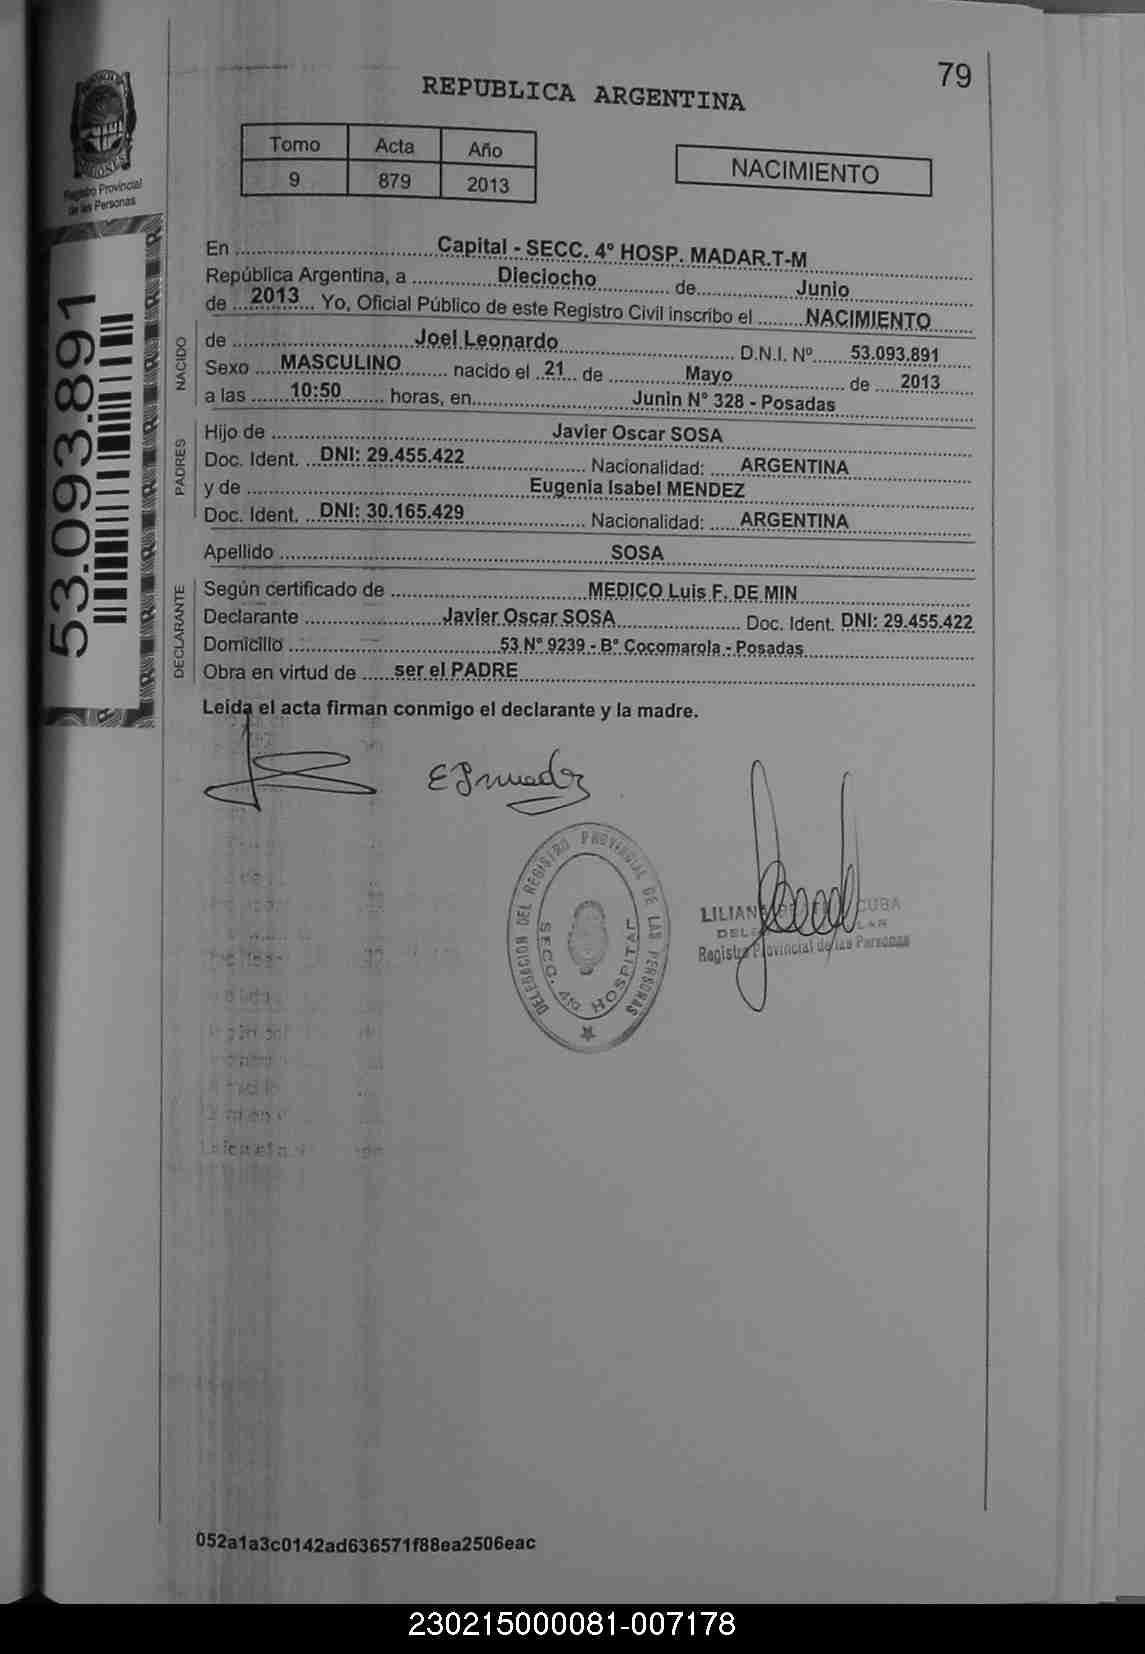 79
REPUBLICA ARGENTINA
Tomo Acta Año
9 879 2013
NACIMIENTO
Registro Provincial
de las Personas
53.093.891
En Capital - SECC. 4° HOSP. MADAR.T-M
República Argentina, a Dieciocho de Junio
de 2013 Yo, Oficial Público de este Registro Civil inscribo el NACIMIENTO
NACIDO
de Joel Leonardo D.N.I. Nº 53.093.891
Sexo MASCULINO nacido el 21 de Mayo de 2013
a las 10:50 horas, en Junin N° 328 - Posadas
PADRES
Hijo de Javier Oscar SOSA
Doc. Ident. DNI: 29.455.422 Nacionalidad: ARGENTINA
y de Eugenia Isabel MENDEZ
Doc. Ident. DNI: 30.165.429 Nacionalidad: ARGENTINA
Apellido SOSA
DECLARANTE
Según certificado de MEDICO Luis F. DE MIN
Declarante Javier Oscar SOSA Doc. Ident. DNI: 29.455.422
Domicilio 53 N° 9239 - B° Cocomarola - Posadas
Obra en virtud de ser el PADRE
Leida el acta firman conmigo el declarante y la madre.
DELEGACION DEL REGISTRO PROVINCIAL DE LAS PERSONAS
SECC. 4ta HOSPITAL
Registro Provincial de las Personas
052a1a3c0142ad636571f88ea2506eac
230215000081-007178